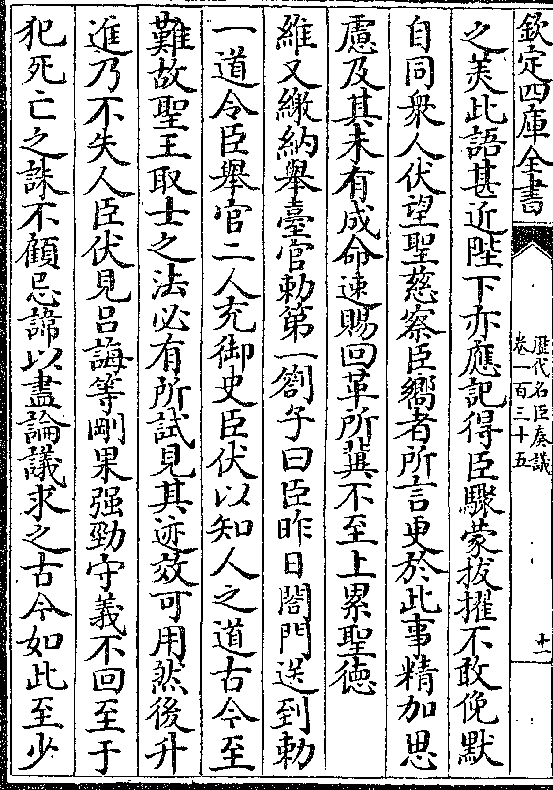 欽定四庫全書
歴代名臣奏議
卷一百三十五
十一
之美此語甚近陛下亦應記得臣驟蒙拔擢不敢俛默
自同衆人伏望聖慈察臣嚮者所言更於此事精加思
慮及其未有成命速賜回革所兾不至上累聖徳
維又繳納舉臺官勅第一劄子曰臣昨日閤門送到勅
一道令臣舉官二人充御史臣伏以知人之道古今至
難故聖王取士之法必有所試見其迹效可用然後升
進乃不失人臣伏見吕誨等剛果强勁守義不回至于
犯死亡之誅不顧忌諱以盡論議求之古今如此至少